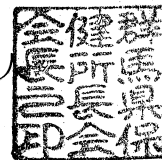 群馬県保
健所長会
会長之印